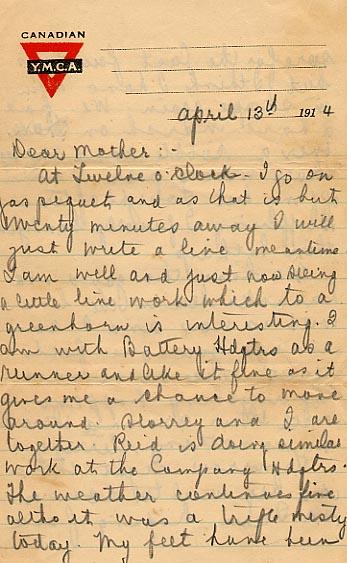 CANADIAN
Y.M.C.A.
April 13th 1914
Dear Mother:-
At Twelve o'clock I go on
gas piquet and as that is but
twenty minutes away I will
just write a line meantime
I am well and just now seeing
a little line work which to a
greenhorn is interesting. I
am with Battery Hdqtrs as a
runner and like it fine as it
gives me a chance to move
around. Storrey and I are
together. Reid is doing similar
work at the Company Hdqtrs.
The weather continues fine
altho it was a trifle misty
today. My feet have been